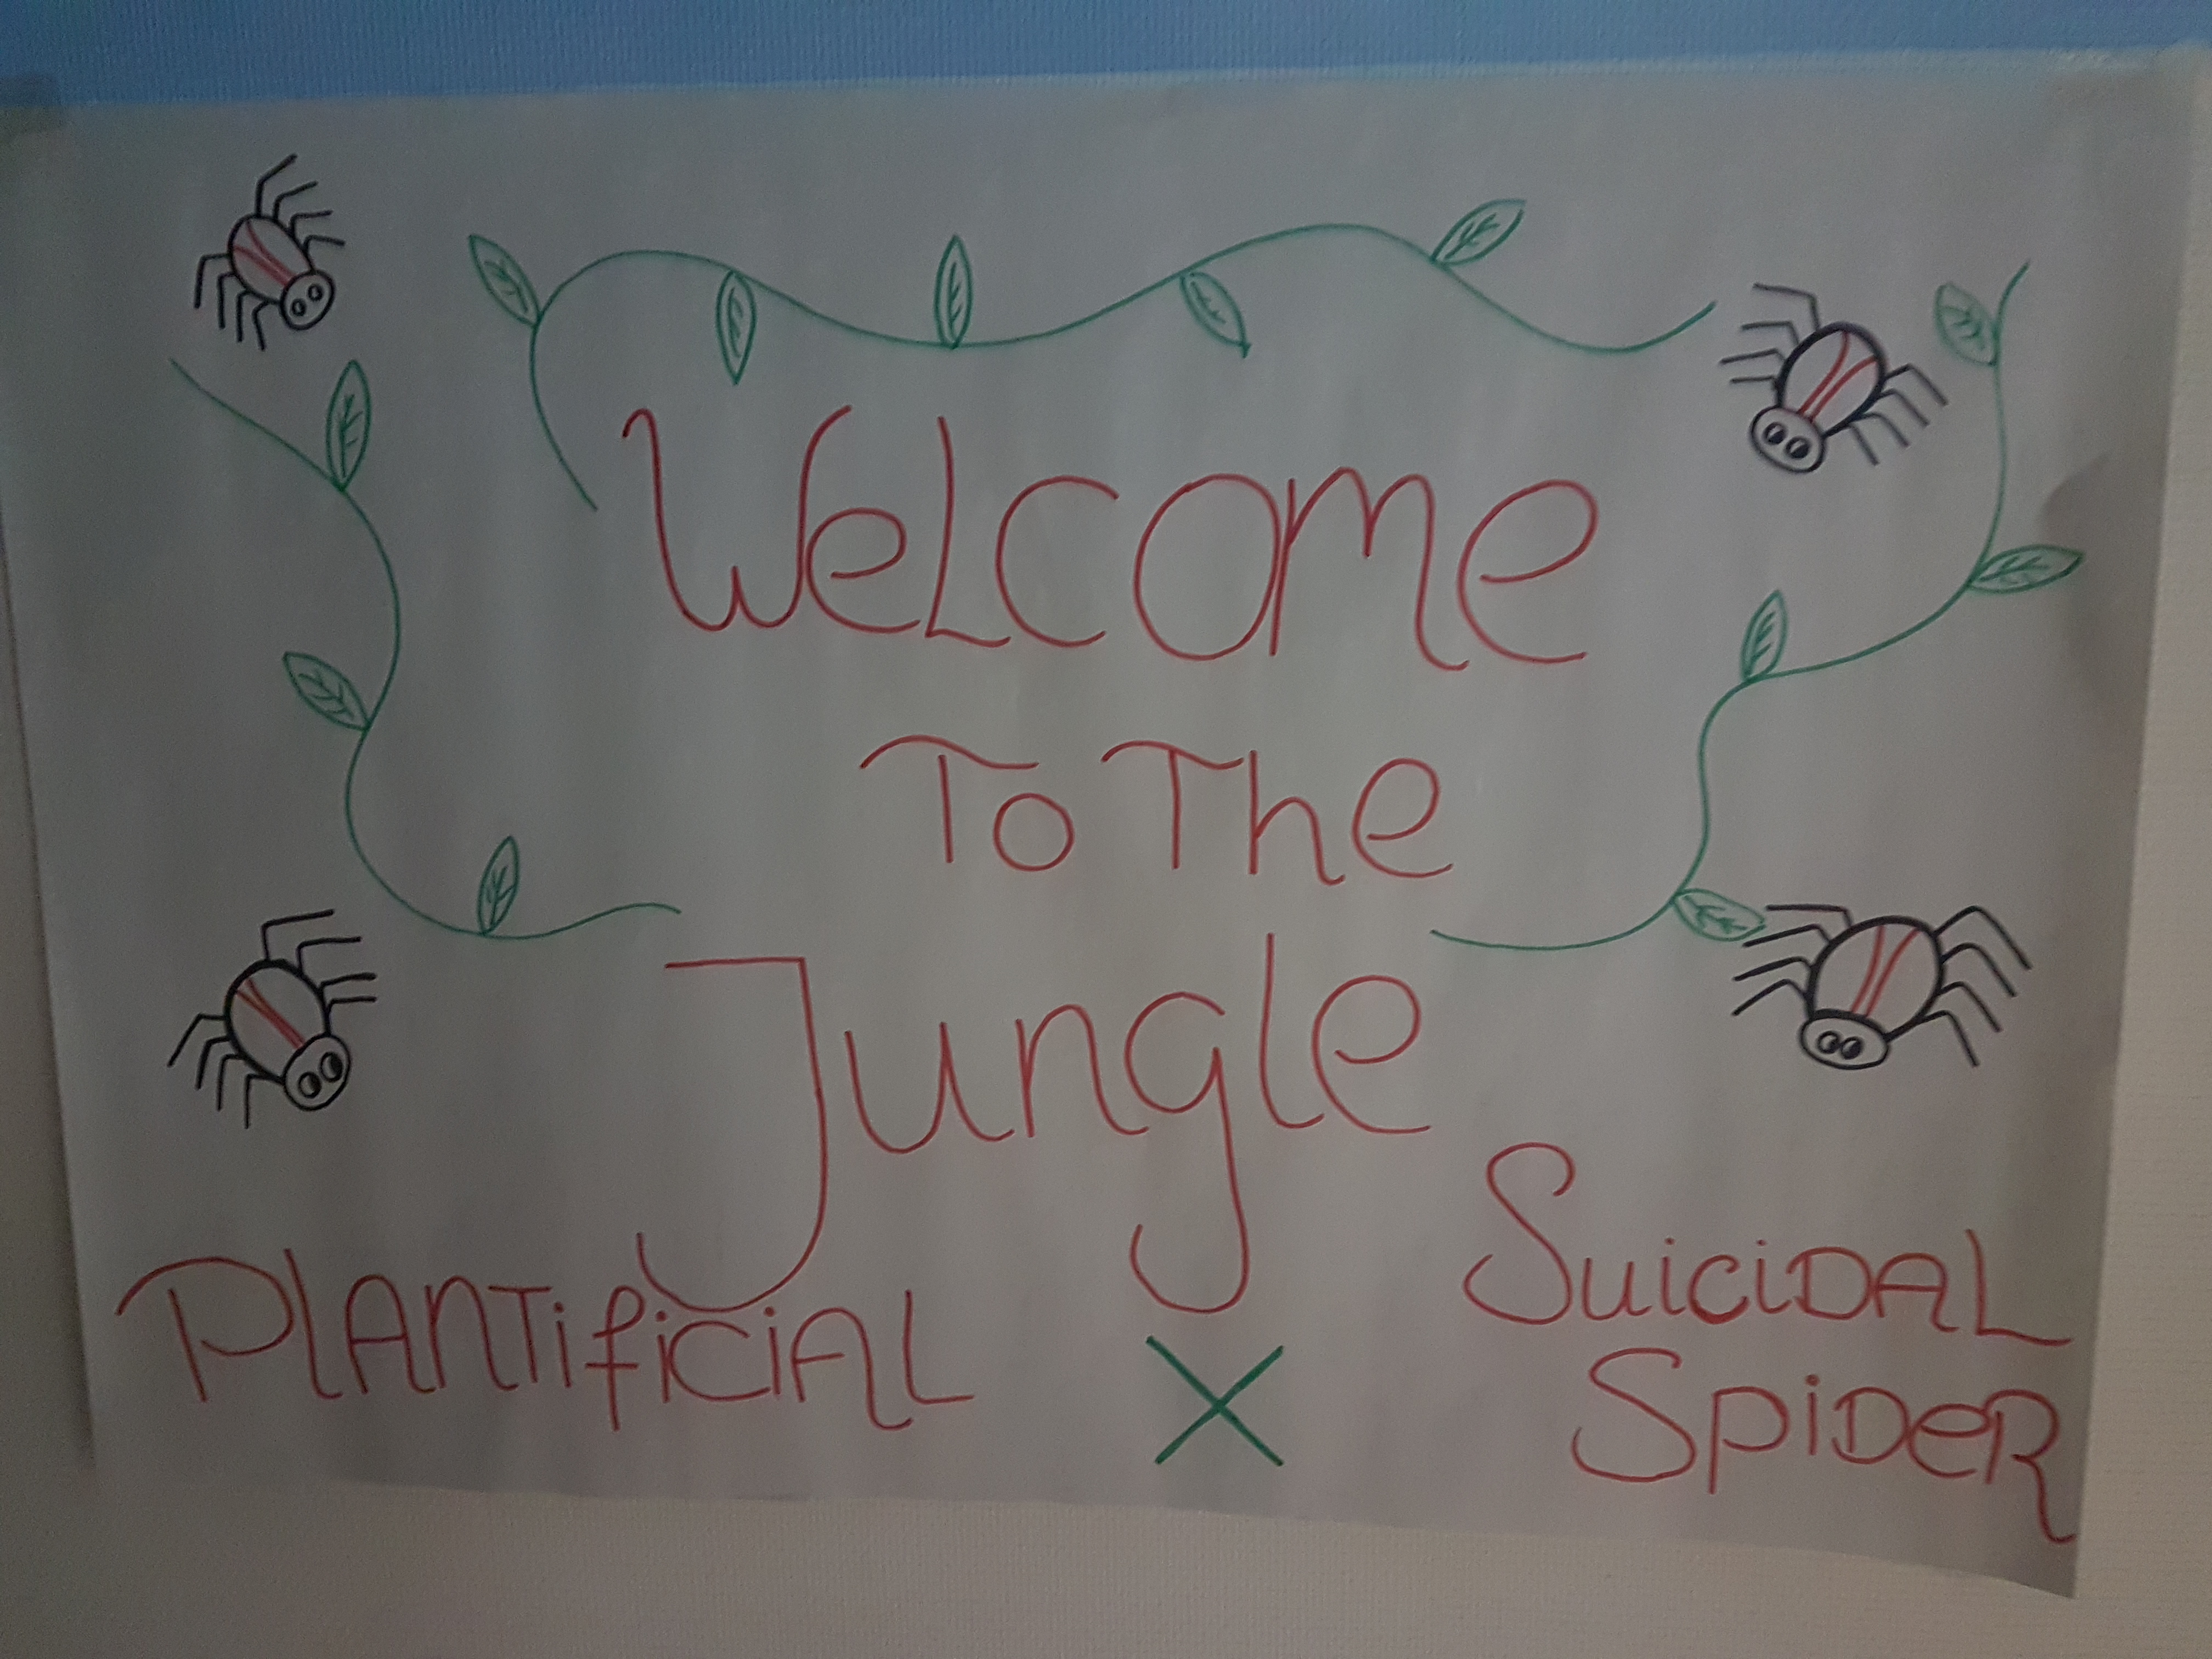 WeLcome
To The
Jungle
PLANTificiAL X SuiciDAL
SpiDeR